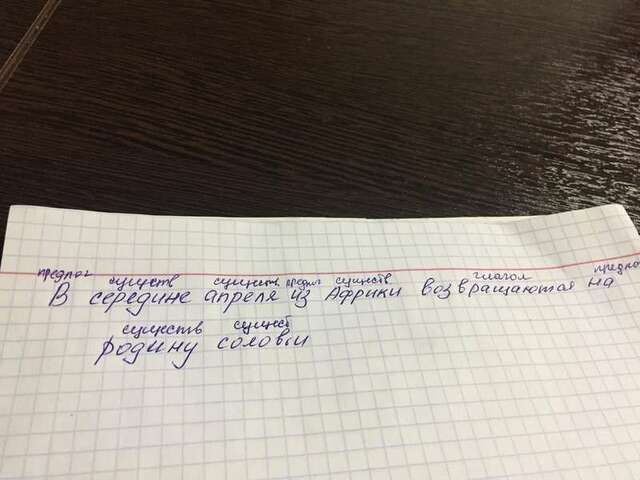 предлог существ существ. предлог существ глагол предлог
В середине апреля из Африки возвращаются на
существ сущест
родину соловьи